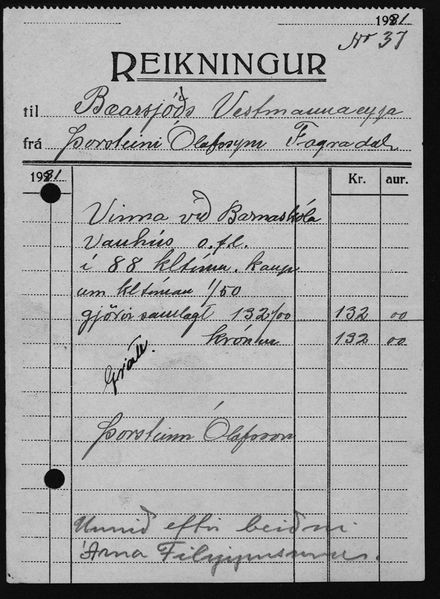 1921
Nr 37
REIKNINGUR
til Bæarsjóðs Vestmannaeyja
frá Þorsteini Ólafssyni Fagradal
1921 Kr. aur.
Vinna við Barnaskóla
Vanhús o.fl.
í 88 kltíma. kaup
um kltíman 1/50
gjörir samlagt 132/00 132 00
krónur 132 00
Þorsteinn Ólafsson
Unnið eftir beiðni
Árna Filippussonar.